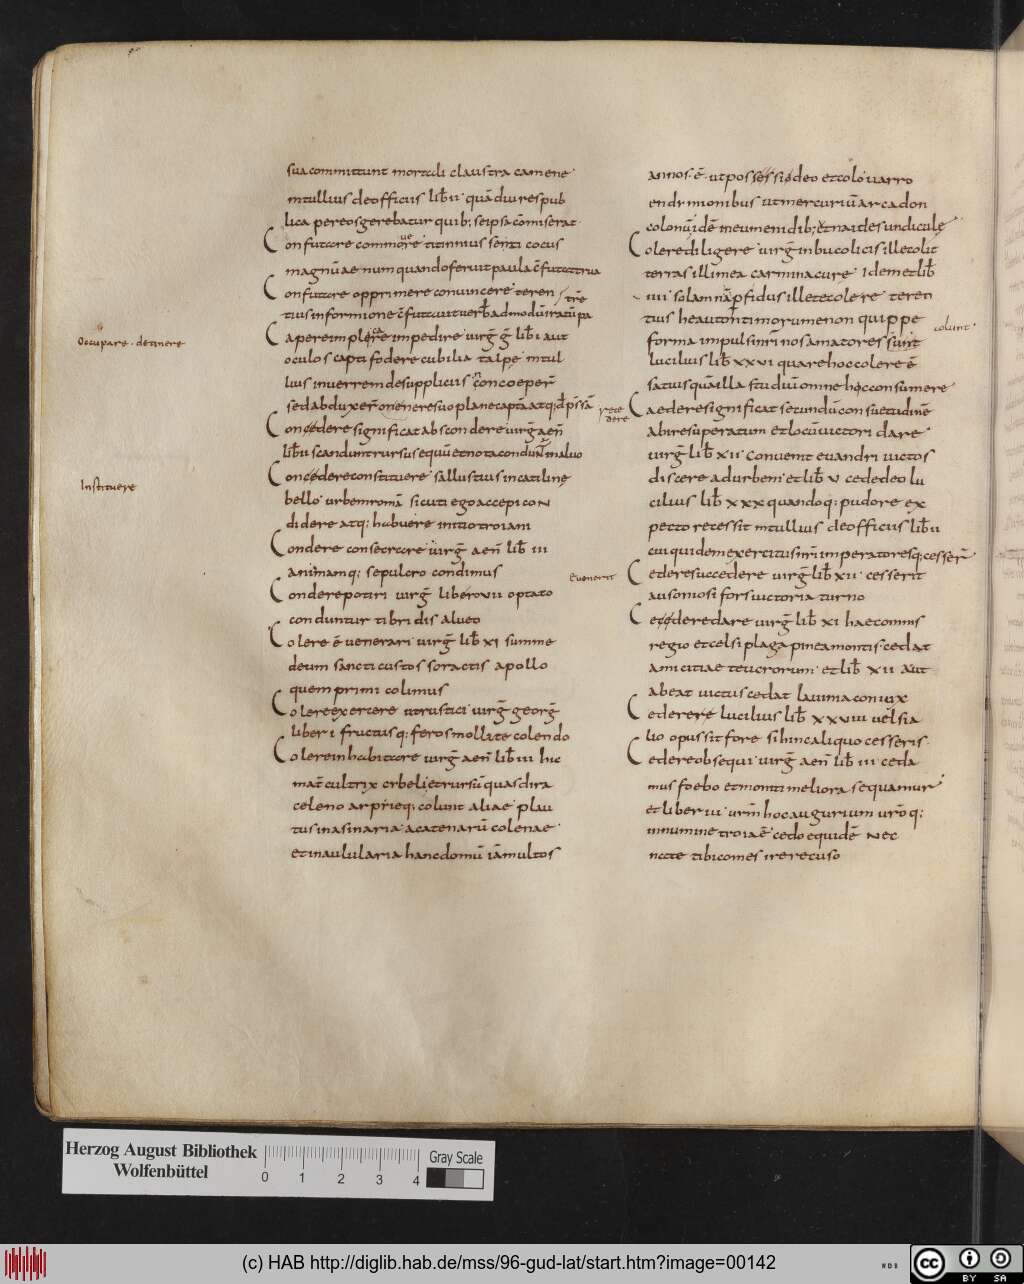 sua committunt mortali claustra camene
mtullius deofficiis lib̄ ii quādiu respub
lica pereos gerebatur quib; seipsa cōmiserat
Confutare commouere titinnius senti cocus
magnū aenum quando feruit paula c̄futat trua
Confutare opprimere conuincere teren
tius informione c̄futauit uerb̄ admodū iratū pa
trē
Capere implicare impedire uirḡ ḡ lib̄ i aut
oculos capti fodere cubilia talpe mtul
lius inuerrem desuppliciis
sed abduxer̄
Concedere significat abscondere uirḡ aen̄
lib̄
scandunt rursus equū et nota condunt in aluo
Condere constituere sallustius incatiline
bello urbem romā sicuti ego accepi con
didere atq; habuere initio troiani
Condere consecrare uirḡ aen̄ lib̄ iii
animamq; sepulcro condimus
Condere potiri uirḡ libero vii optato
conduntur tibridis alueo
Colere ē uenerari uirḡ lib̄ xi summe
deum sancti custos soractis apollo
quem primi colimus
Colere exercere ut rustici uirḡ georḡ
liber i fructusq; feros mollite colendo
Colere inhabitare uirḡ aen̄ lib̄ iii hic
mat̄ cultrix cybeli et rursū quas dira
celeno arpyieq; colunt aliae plau
tus in asinaria acatenarū colenae
et in aulularia hanc domū iā multos
Occupare. detinere
Instituere
annos ē ut possessideo et colo uarro
endymionibus ut mercuriū arcadon
colon
Colere diligere uirḡ in bucolicis ille colit
terras illi mea carmina cure Idem et lib̄
iiii solam nā perfidus ille te colere teren
tius heautontimorumenon quippe
forma impulsi nr̄i nos amatores
colunt
lucilius lib̄ xxvi quare hoc colere ē
satius quā illa studiū omne hoc consumere
Caedere significat secundū consuetudinē
rece
dere
abire superatum et locū uictori dare
uirḡ lib̄ xii conuenit euandri uictos
discere ad urbem et lib̄ v cede deo lu
cilius lib̄ xxx quandoq; pudore ex
pecto recessit mtullius deofficiis lib̄ ii
cui quidem exercitus nr̄i imperatoresq; cesser̄
Cedere succedere uirḡ lib̄ xii cesserit
euenerit
ausonio si fors uictoria turno
Cedere dare uirḡ lib̄ xi haec omnis
regio et celsi plaga pinea montis cedat
amicitiae teucrorum et lib̄ xii aut
abeat uictus cedat lauinia coniux
Cedere lucilius lib̄ xxviii uel si a
lio opus sit fore si hinc aliquo cesseris
Cedere obsequi uirḡ aen̄ lib̄ iii ceda
mus foebo et moniti meliora sequamur
et liber ii urm̄ hoc augurium urōq;
in numine troia ē cedo equidē nec
nate tibi comes ire recuso
Herzog August Bibliothek
Wolfenbüttel
0 1 2 3 4
Gray Scale
(c) HAB http://diglib.hab.de/mss/96-gud-lat/start.htm?image=00142
WDB
cc
BY SA